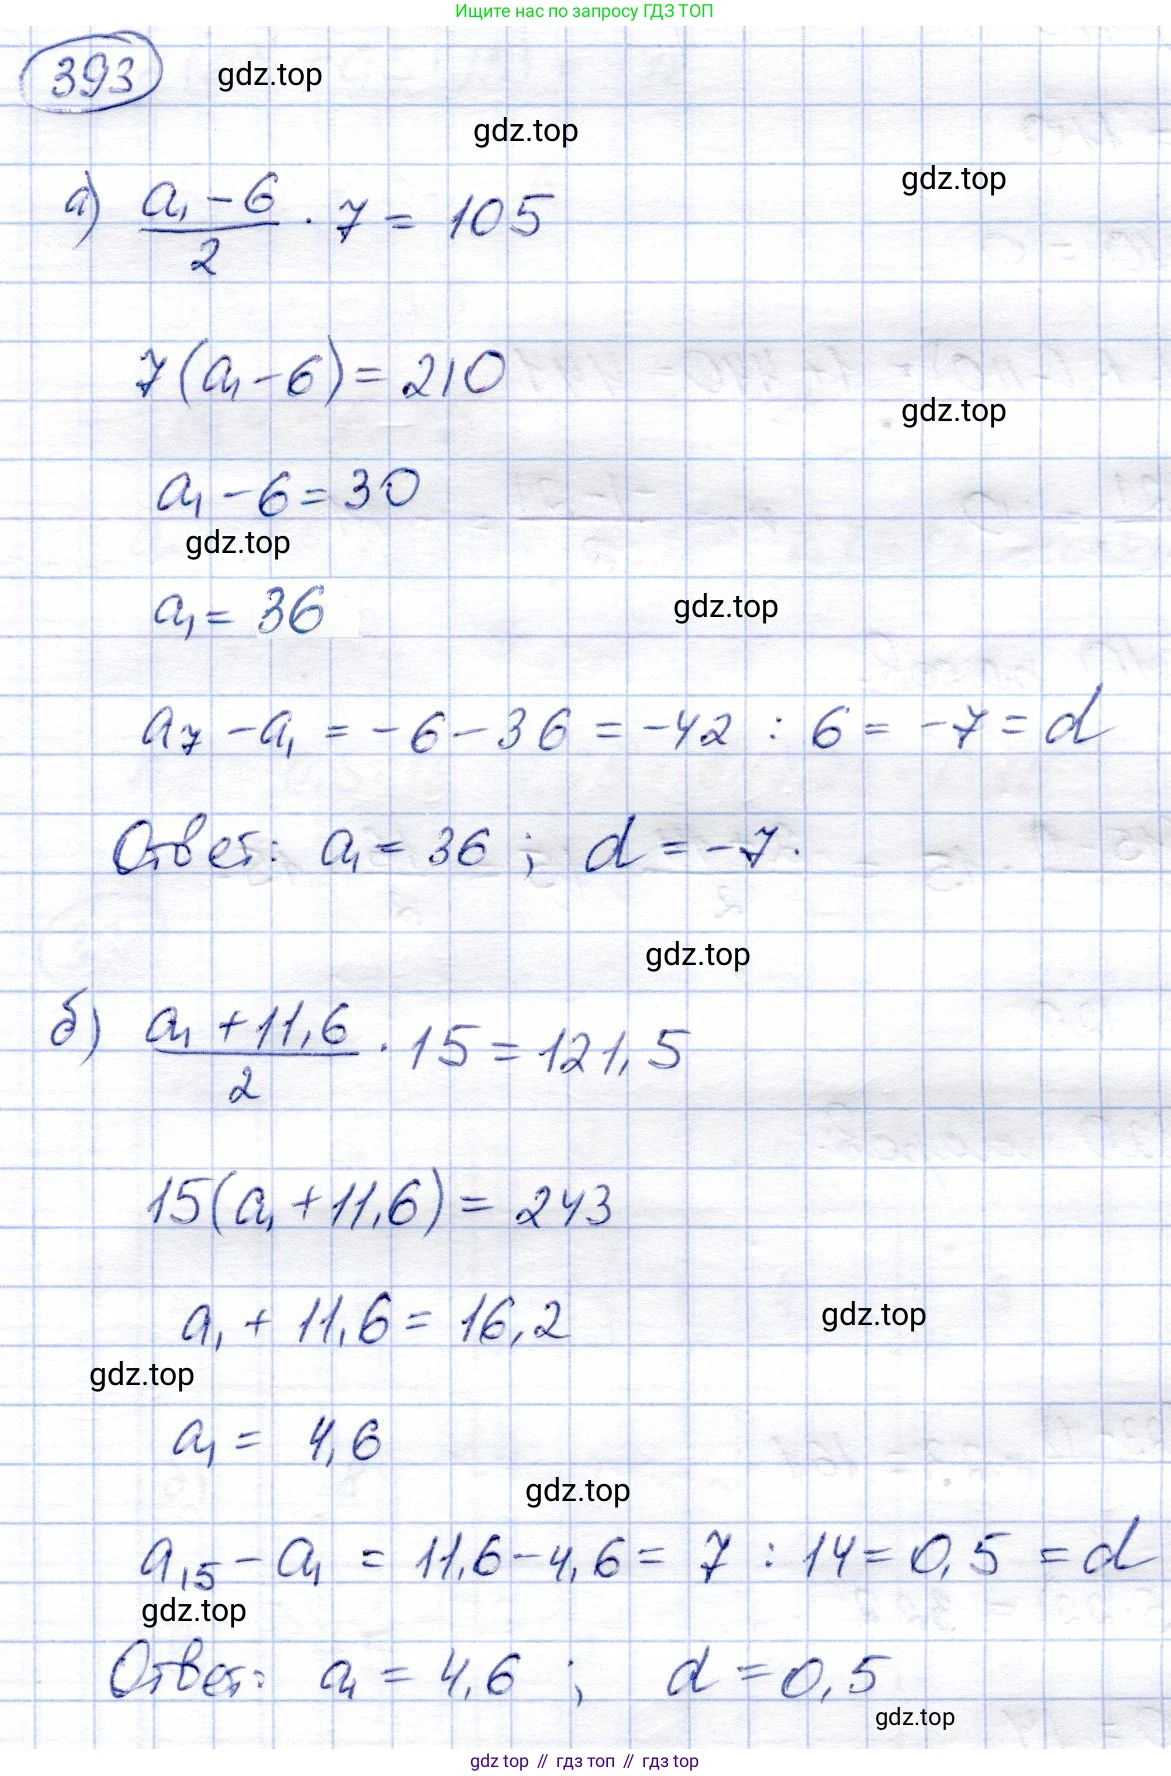 Ищите нас по запросу ГДЗ ТОП
393 gdz.top
gdz.top
gdz.top
а) (a₁ - 6)/2 · 7 = 105
7(a₁ - 6) = 210
gdz.top
a₁ - 6 = 30
gdz.top
a₁ = 36
gdz.top
a₇ - a₁ = -6 - 36 = -42 : 6 = -7 = d
Ответ: a₁ = 36 ; d = -7.
gdz.top
б) (a₁ + 11,6)/2 · 15 = 121,5
15(a₁ + 11,6) = 243
a₁ + 11,6 = 16,2
gdz.top
gdz.top
a₁ = 4,6
gdz.top
a₁₅ - a₁ = 11,6 - 4,6 = 7 : 14 = 0,5 = d
gdz.top
Ответ: a₁ = 4,6 ; d = 0,5
gdz.top
gdz top // гдз топ // гдз top